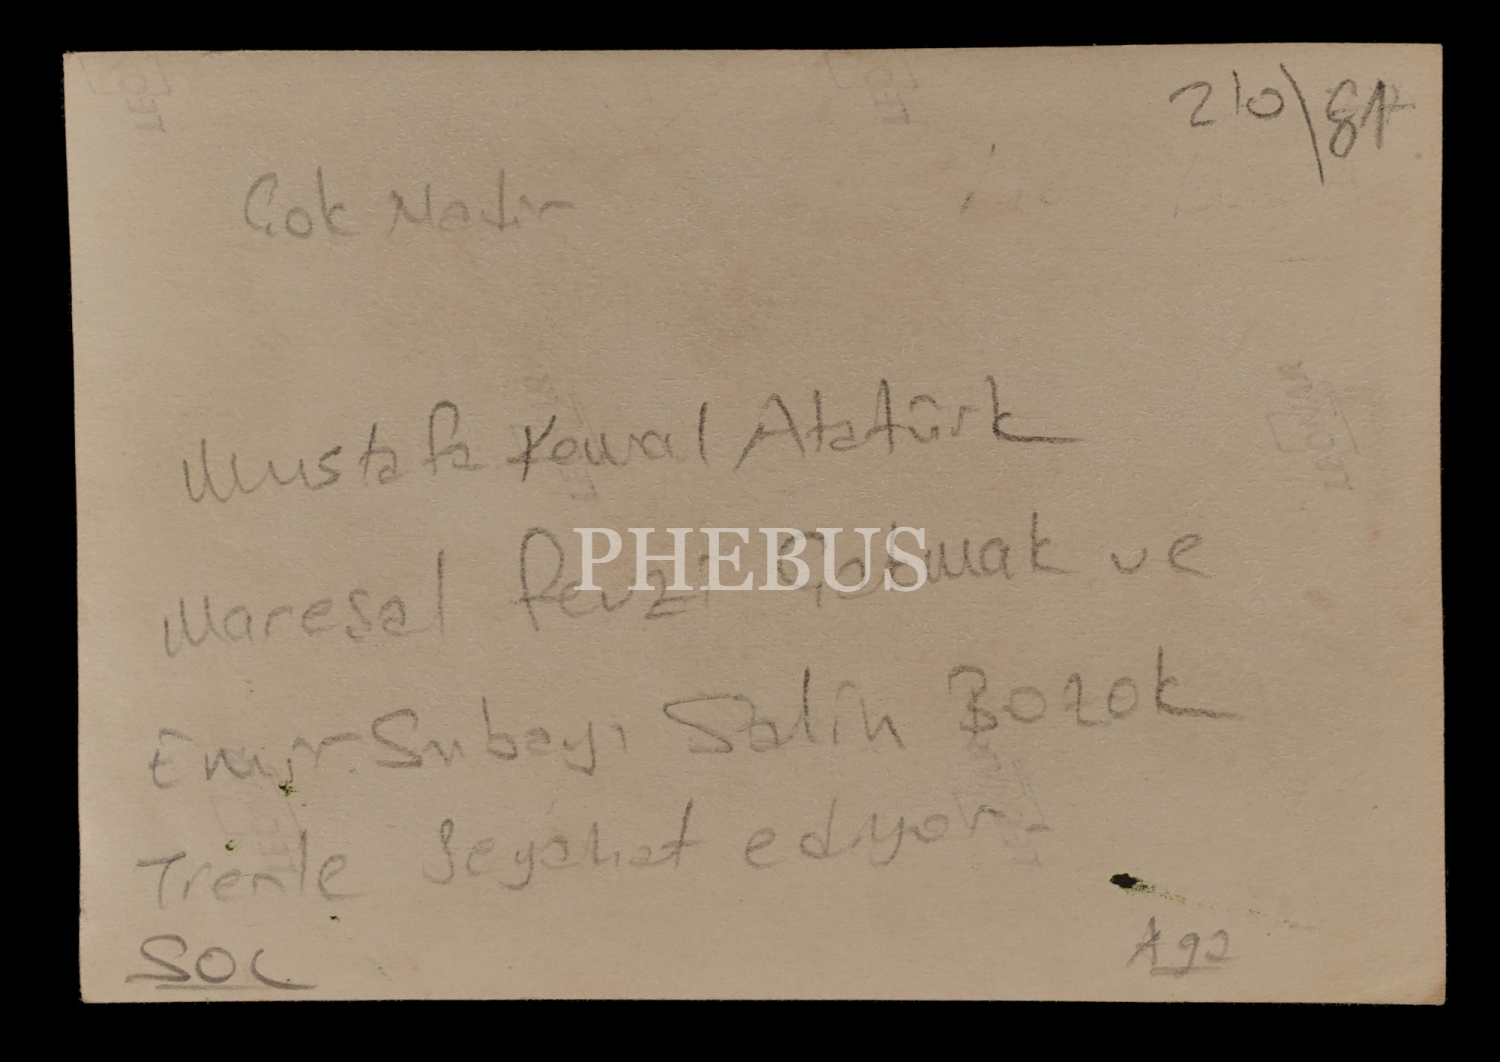 210\
Çok Nadir
Mustafa Kemal Atatürk
Mareşal Fevzi Çakmak ve
PHEBUS
Emir Subayı Salih Bozok
Trenle Seyahat ediyor.
SOL